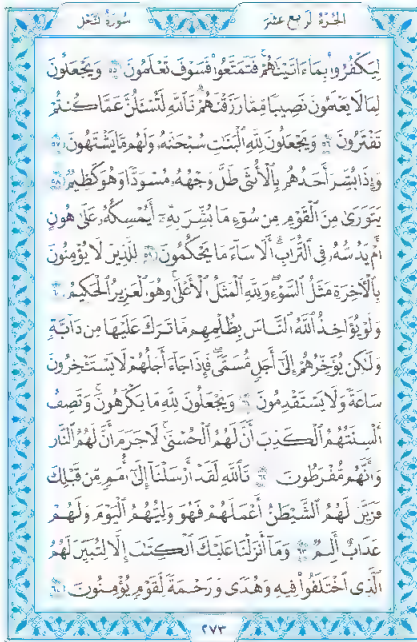 الجزء الرابع عشر
سورة النحل
لِيَكْفُرُوا۟ بِمَآ ءَاتَيْنَٰهُمْ فَتَمَتَّعُوا۟ فَسَوْفَ تَعْلَمُونَ ٥٥ وَيَجْعَلُونَ
لِمَا لَا يَعْلَمُونَ نَصِيبًا مِّمَّا رَزَقْنَٰهُمْ تَٱللَّهِ لَتُسْـَٔلُنَّ عَمَّا كُنتُمْ
تَفْتَرُونَ ٥٦ وَيَجْعَلُونَ لِلَّهِ ٱلْبَنَٰتِ سُبْحَٰنَهُۥ وَلَهُم مَّا يَشْتَهُونَ ٥٧
وَإِذَا بُشِّرَ أَحَدُهُم بِٱلْأُنثَىٰ ظَلَّ وَجْهُهُۥ مُسْوَدًّا وَهُوَ كَظِيمٌ ٥٨
يَتَوَٰرَىٰ مِنَ ٱلْقَوْمِ مِن سُوٓءِ مَا بُشِّرَ بِهِۦٓ أَيُمْسِكُهُۥ عَلَىٰ هُونٍ
أَمْ يَدُسُّهُۥ فِى ٱلتُّرَابِ أَلَا سَآءَ مَا يَحْكُمُونَ ٥٩ لِلَّذِينَ لَا يُؤْمِنُونَ
بِٱلْأَخِرَةِ مَثَلُ ٱلسَّوْءِ وَلِلَّهِ ٱلْمَثَلُ ٱلْأَعْلَىٰ وَهُوَ ٱلْعَزِيزُ ٱلْحَكِيمُ ٦٠
وَلَوْ يُؤَاخِذُ ٱللَّهُ ٱلنَّاسَ بِظُلْمِهِم مَّا تَرَكَ عَلَيْهَا مِن دَآبَّةٍ
وَلَٰكِن يُؤَخِّرُهُمْ إِلَىٰٓ أَجَلٍ مُّسَمًّى فَإِذَا جَآءَ أَجَلُهُمْ لَا يَسْتَـْٔخِرُونَ
سَاعَةً وَلَا يَسْتَقْدِمُونَ ٦١ وَيَجْعَلُونَ لِلَّهِ مَا يَكْرَهُونَ وَتَصِفُ
أَلْسِنَتُهُمُ ٱلْكَذِبَ أَنَّ لَهُمُ ٱلْحُسْنَىٰ لَا جَرَمَ أَنَّ لَهُمُ ٱلنَّارَ
وَأَنَّهُم مُّفْرَطُونَ ٦٢ تَٱللَّهِ لَقَدْ أَرْسَلْنَآ إِلَىٰٓ أُمَمٍ مِّن قَبْلِكَ
فَزَيَّنَ لَهُمُ ٱلشَّيْطَٰنُ أَعْمَٰلَهُمْ فَهُوَ وَلِيُّهُمُ ٱلْيَوْمَ وَلَهُمْ
عَذَابٌ أَلِيمٌ ٦٣ وَمَآ أَنزَلْنَا عَلَيْكَ ٱلْكِتَٰبَ إِلَّا لِتُبَيِّنَ لَهُمُ
ٱلَّذِى ٱخْتَلَفُوا۟ فِيهِ وَهُدًى وَرَحْمَةً لِّقَوْمٍ يُؤْمِنُونَ ٦٤
٢٧٣